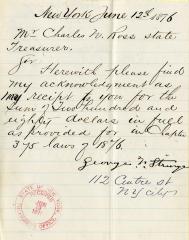 New York June 12th 1876
Mr Charles N. Ross state
Treasurer.
Sir
Herewith please find
my acknowledgment as
my receipt to you for the
Sum of Two hundred and
eighty dollars in full
as provided for in Chapt
375 laws of 1876.
George W.
112 Centre St
N Y City